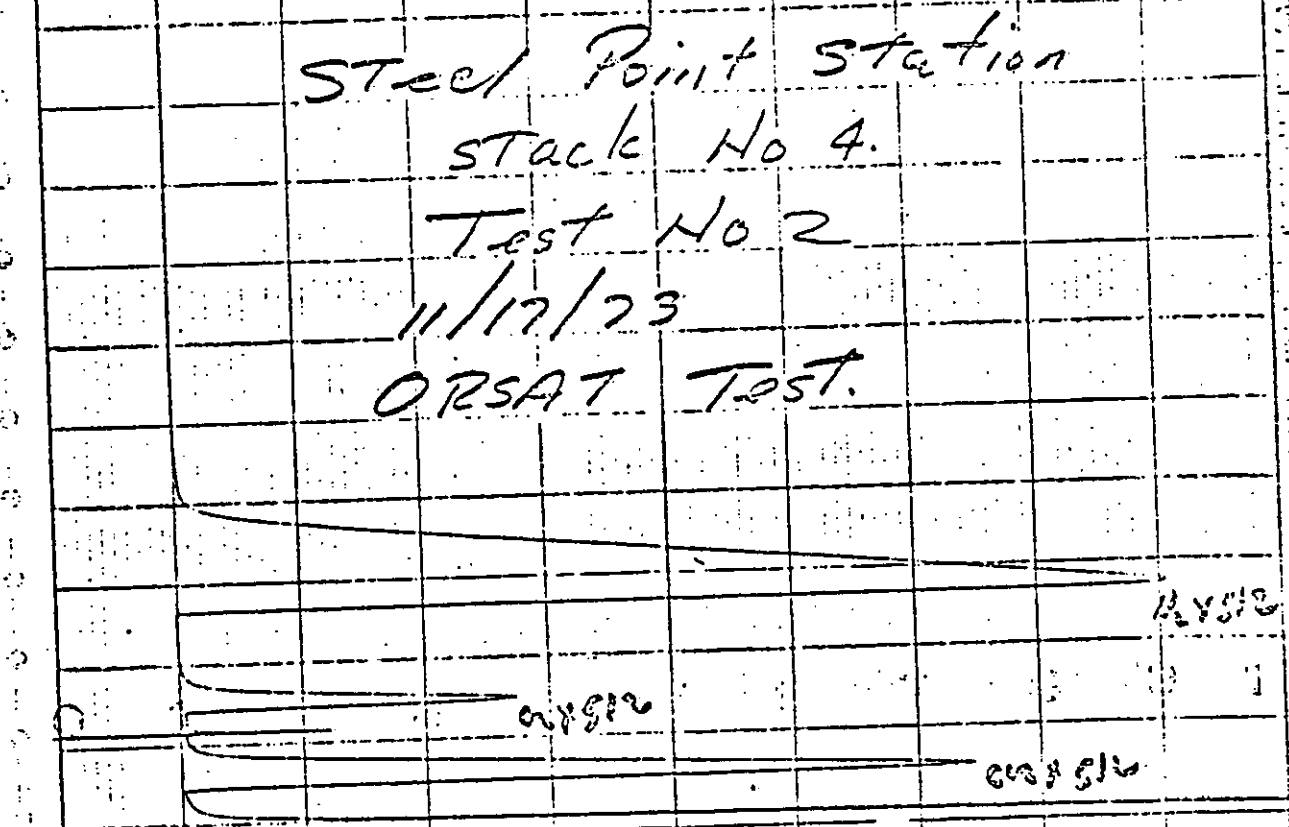 Steel Point Station
Stack No 4.
Test No 2
11/17/73
ORSAT Test.